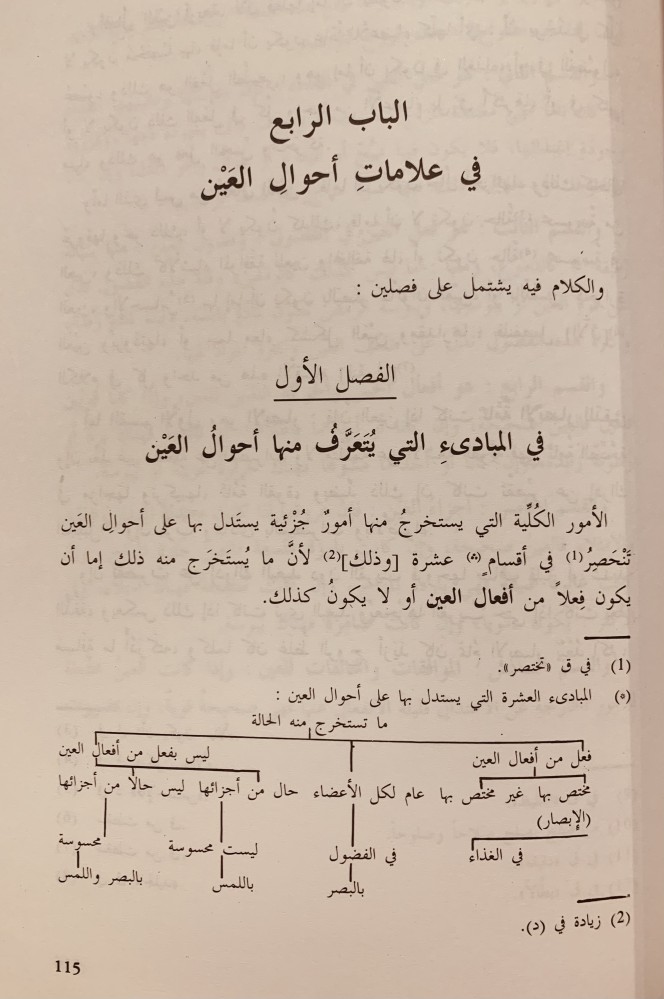 الباب الرابع
في علاماتِ أحوالِ العَيْن
والكلام فيه يشتمل على فصلين :
الفصل الأول
في المبادىءِ التي يُتَعَرَّفُ منها أحوالُ العَيْن
الأمور الكُلِّية التي يستخرجُ منها أمورٌ جُزْئية يستَدل بها على أحوالِ العَين
تَنْحَصِرُ(1) في أقسامٍ(٥) عشرة [وذلك](2) لأنَّ ما يُستَخرَج منه ذلك إما أن
يكون فِعلاً من أفعال العين أو لا يكونُ كذلك.
(1) في ق «تختصر».
(٥) المبادىء العشرة التي يستدل بها على أحوال العين :
ما تستخرج منه الحالة
فعل من أفعال العين ليس بفعل من أفعال العين
مختص بها غير مختص بها عام لكل الأعضاء حال من أجزائها ليس حالًا من أجزائها
(الإبصار)
في الغذاء في الفضول ليست محسوسة محسوسة
بالبصر باللمس بالبصر واللمس
(2) زيادة في (د).
115